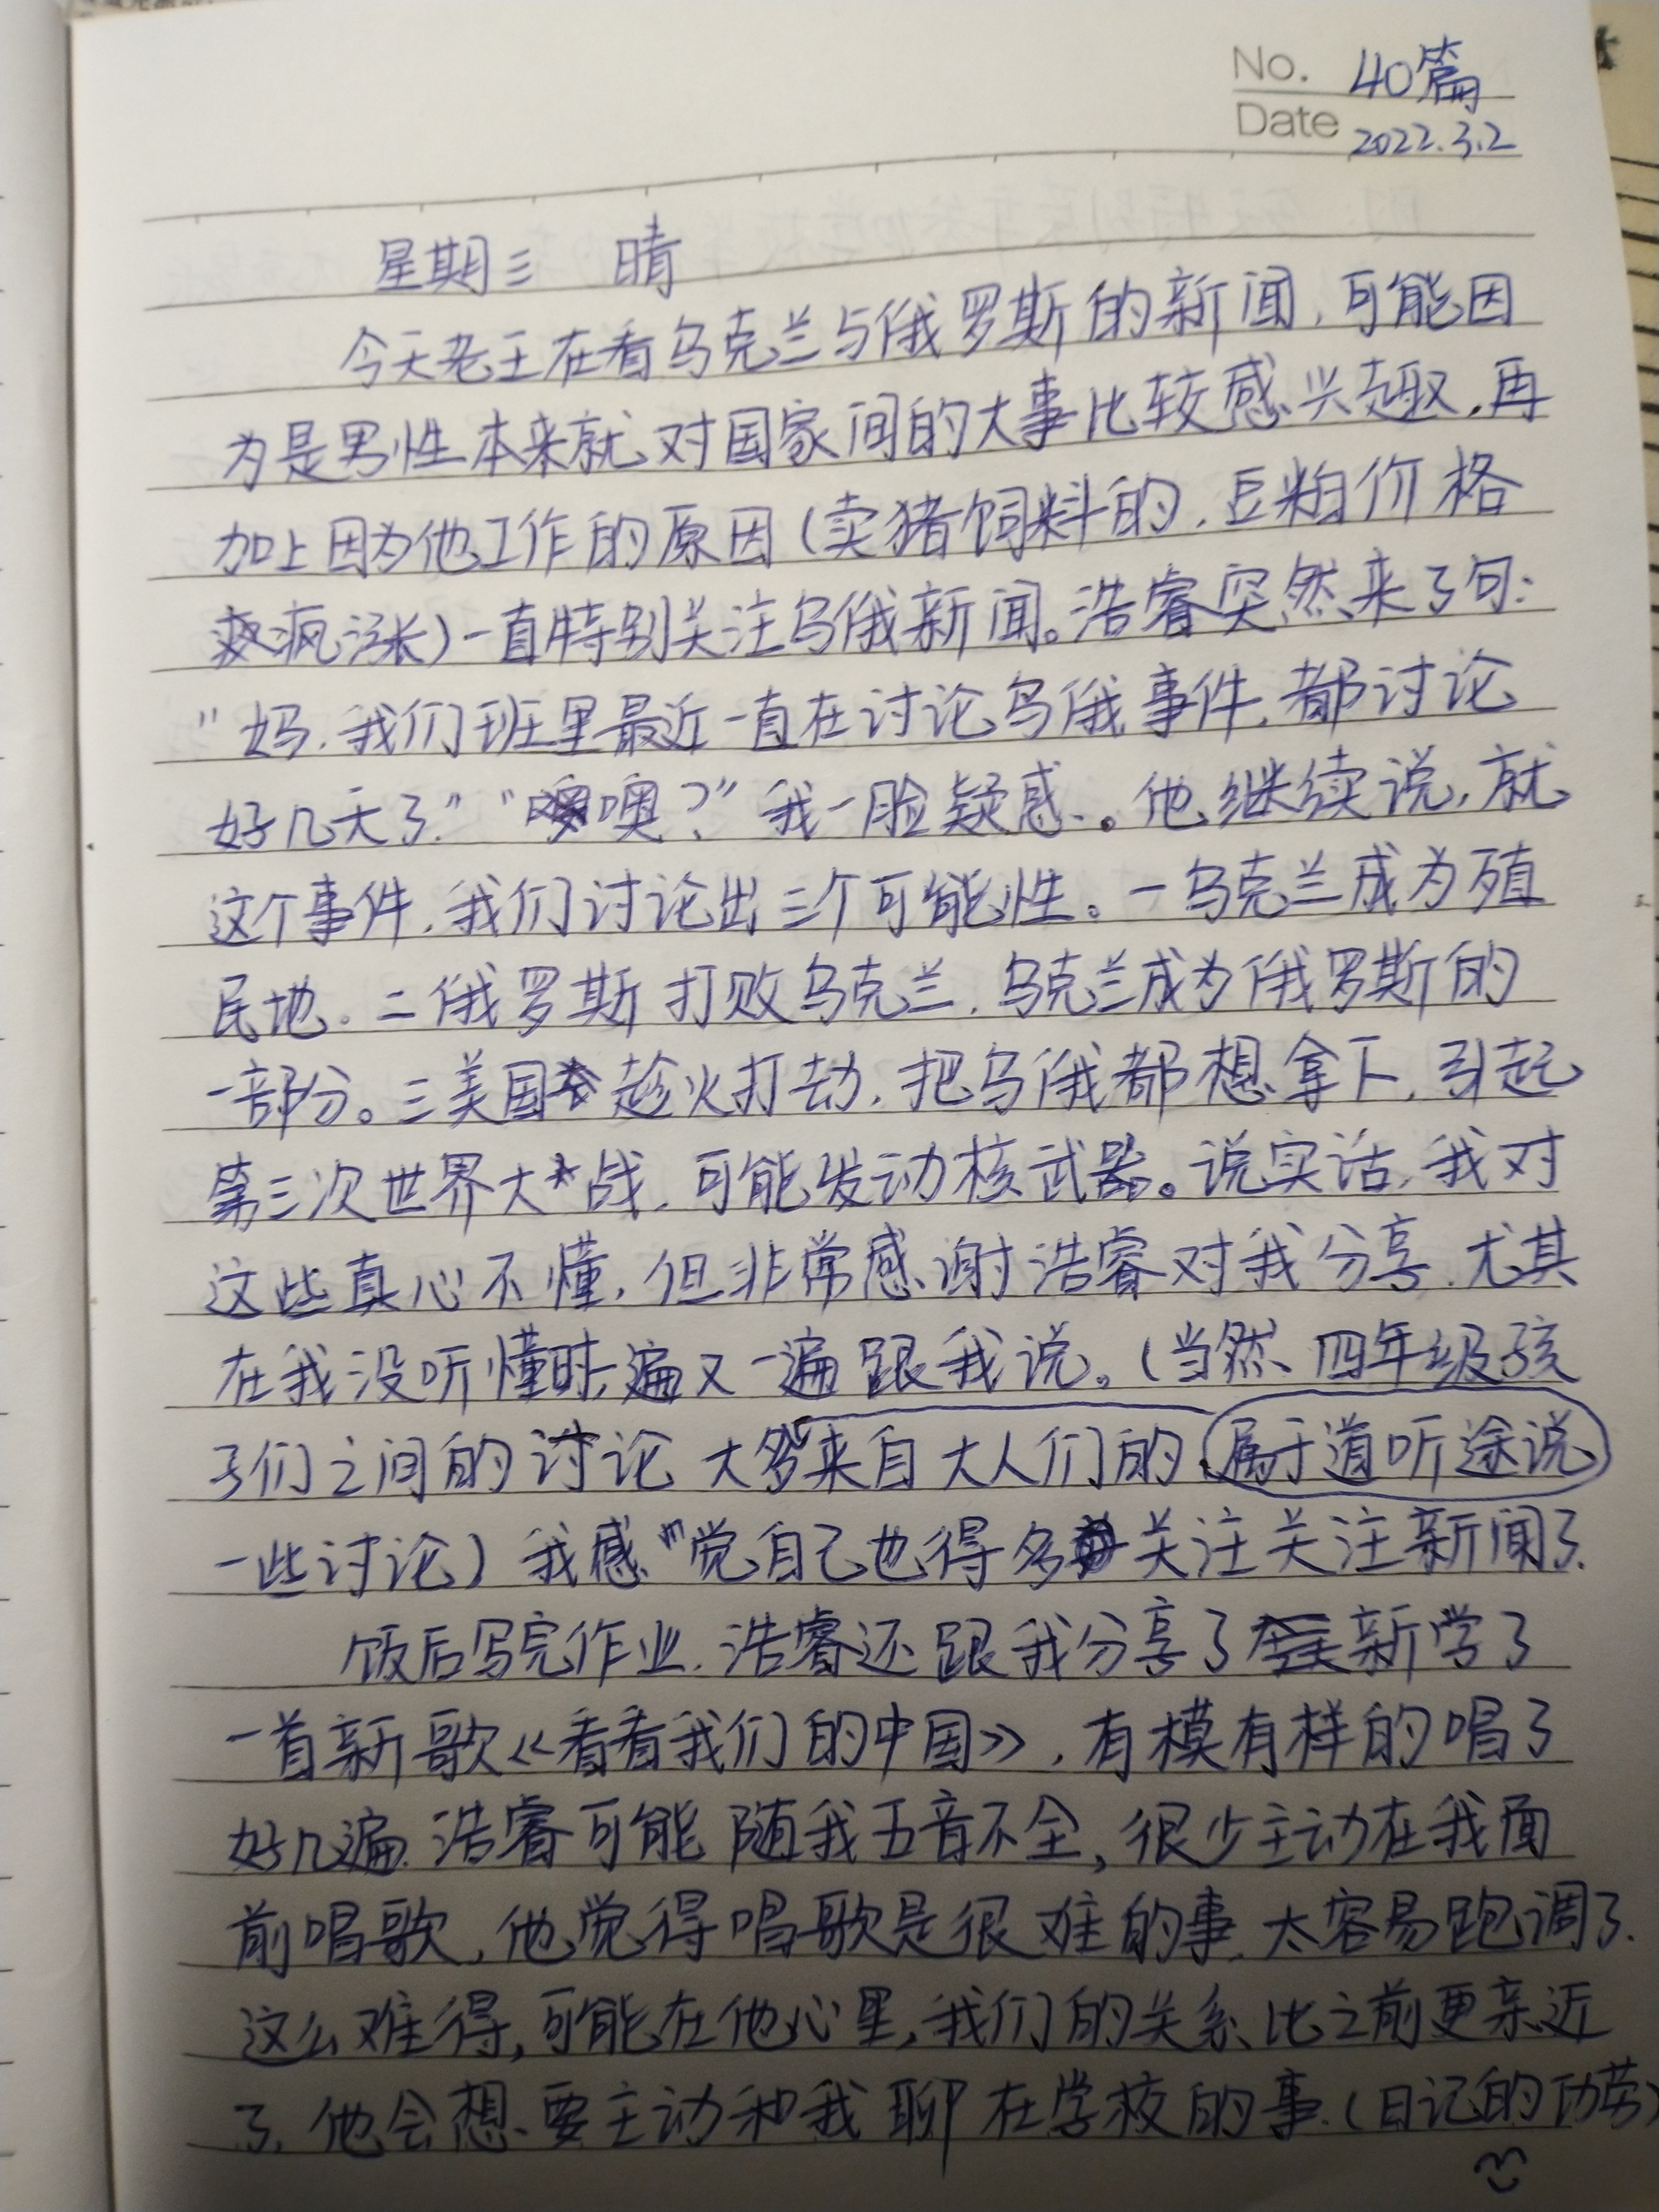 No. 40篇
Date 2022.3.2
星期三 晴
今天老王在看乌克兰与俄罗斯的新闻,可能因
为是男性本来就对国家间的大事比较感兴趣,再
加上因为他工作的原因(卖猪饲料的,豆粕价格
疯涨)一直特别关注乌俄新闻。浩睿突然来了句:
"妈,我们班里最近一直在讨论乌俄事件,都讨论
好几天了." "噢?" 我一脸疑惑。他继续说,就
这个事件,我们讨论出三个可能性。一乌克兰成为殖
民地.二俄罗斯打败乌克兰,乌克兰成为俄罗斯的
一部分。三美国趁火打劫,把乌俄都想拿下,引起
第三次世界大战,可能发动核武器。说实话,我对
这些真心不懂,但非常感谢浩睿对我分享.尤其
在我没听懂时一遍又一遍跟我说。(当然、四年级孩
子们之间的讨论大多来自大人们的 属于道听途说
一些讨论)我感觉自己也得多关注关注新闻了.
饭后写完作业.浩睿还跟我分享了新学了
一首新歌《看看我们的中国》,有模有样的唱了
好几遍.浩睿可能随我五音不全,很少主动在我面
前唱歌,他觉得唱歌是很难的事,太容易跑调了.
这么难得,可能在他心里,我们的关系比之前更亲近
了.他会想要主动和我聊在学校的事.(日记的功劳)